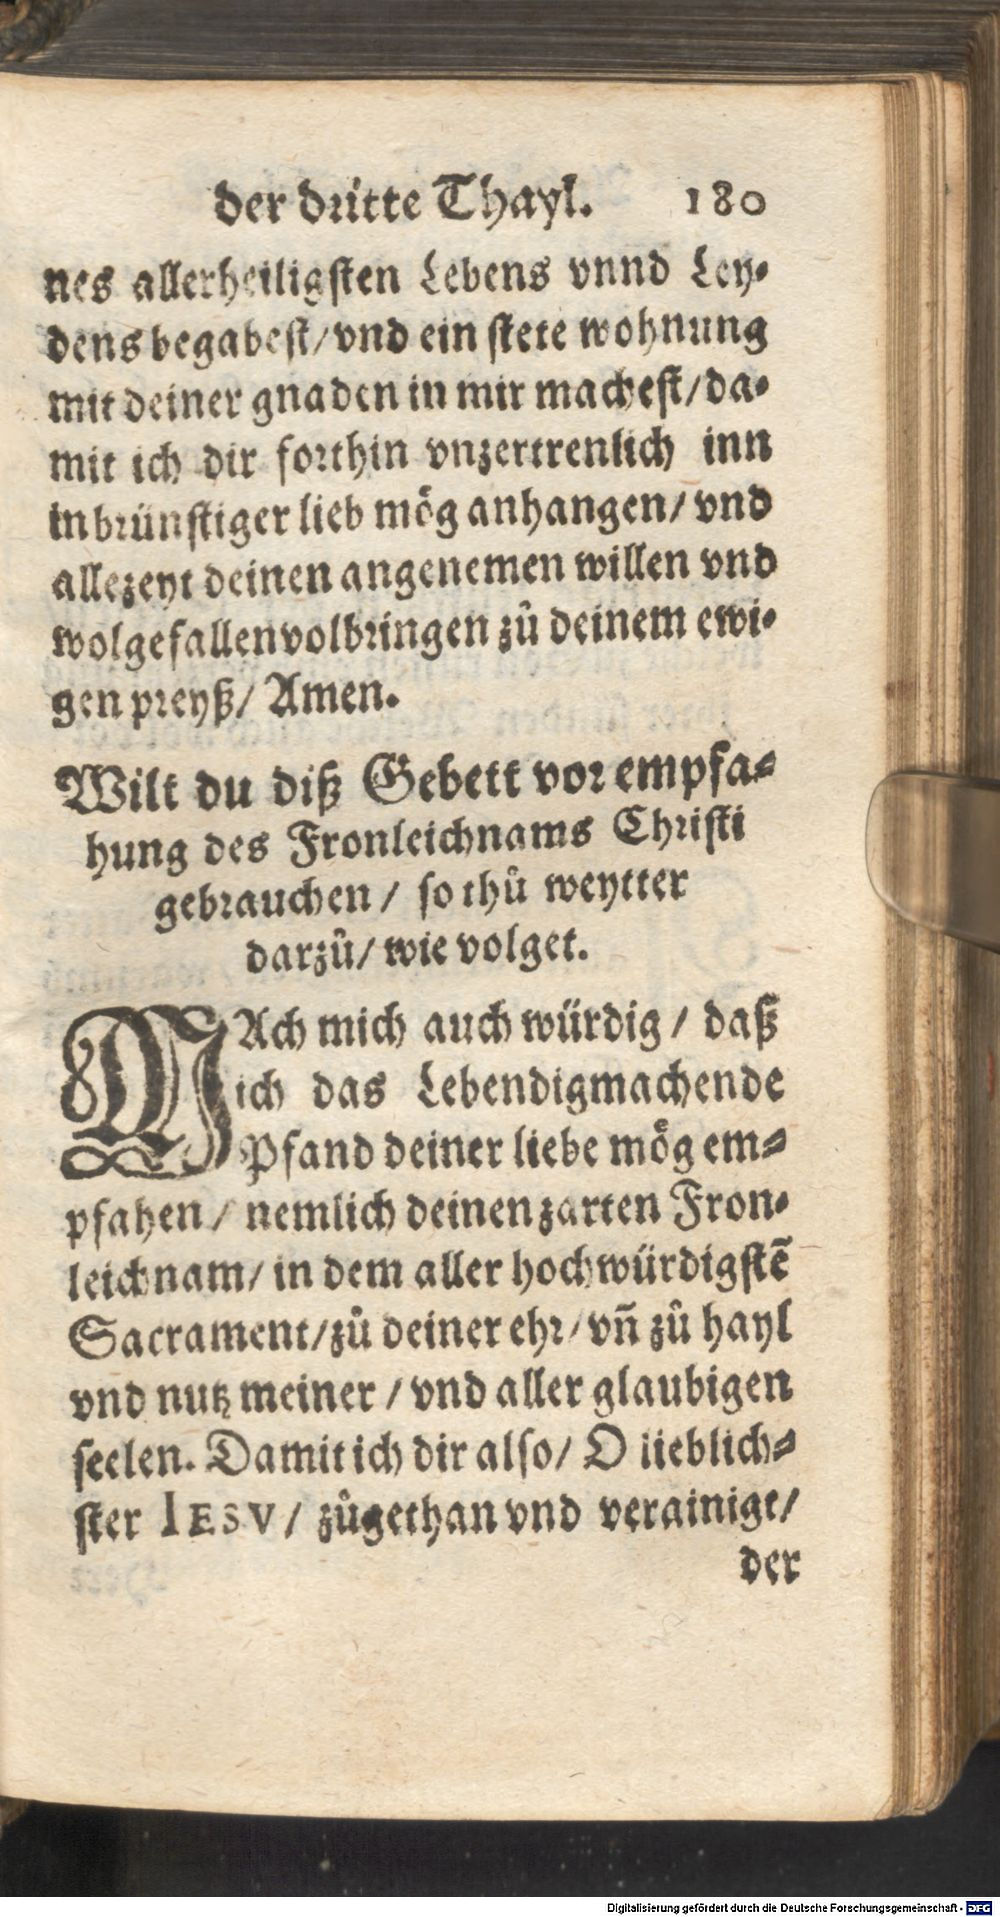 der dritte Thayl. 180
nes allerheiligsten Lebens vnnd Ley-
dens begabest/ vnd ein stete wohnung
mit deiner gnaden in mir machest/ da-
mit ich dir forthin vnzertrenlich inn
inbrünstiger lieb mög anhangen/ vnd
allezeyt deinen angenemen willen vnd
wolgefallen volbringen zů deinem ewi-
gen preyß/ Amen.
Wilt du diß Gebett vor empfa-
hung des Fronleichnams Christi
gebrauchen/ so thů weytter
darzů/ wie volget.
MAch mich auch würdig/ daß
ich das Lebendigmachende
Pfand deiner liebe mög em-
pfahen/ nemlich deinen zarten Fron-
leichnam/ in dem aller hochwürdigstē
Sacrament/ zů deiner ehr/ vñ zů hayl
vnd nutz meiner/ vnd aller glaubigen
seelen. Damit ich dir also/ O lieblich-
ster IESV/ zůgethan vnd verainigt/
der
Digitalisierung gefördert durch die Deutsche Forschungsgemeinschaft - DFG